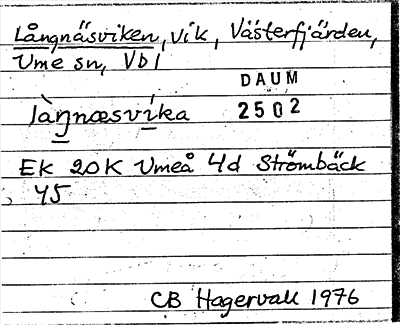 Långnäsviken, vik, Västerfjärden,
Ume sn, Vb l
DAUM
2502
làŋnæsvíka
Ek 20K Umeå 4d Strömbäck
45
CB Hagervall 1976